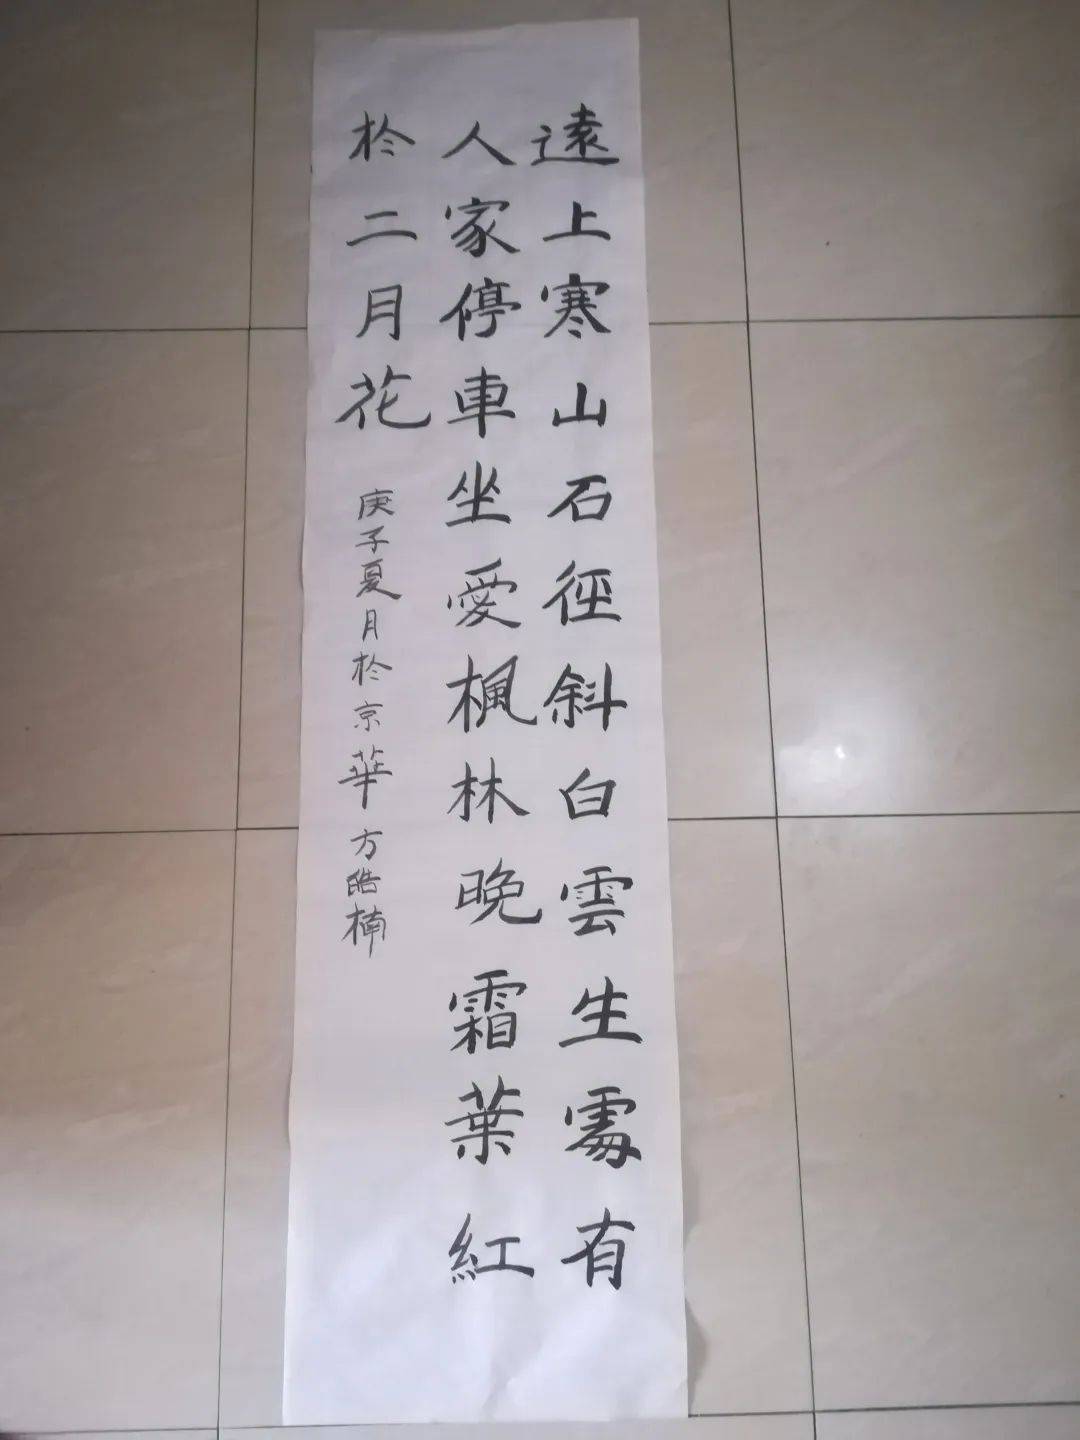 遠上寒山石徑斜白雲生處有
人家停車坐愛楓林晚霜葉紅
於二月花
庚子夏月於京華方皓楠